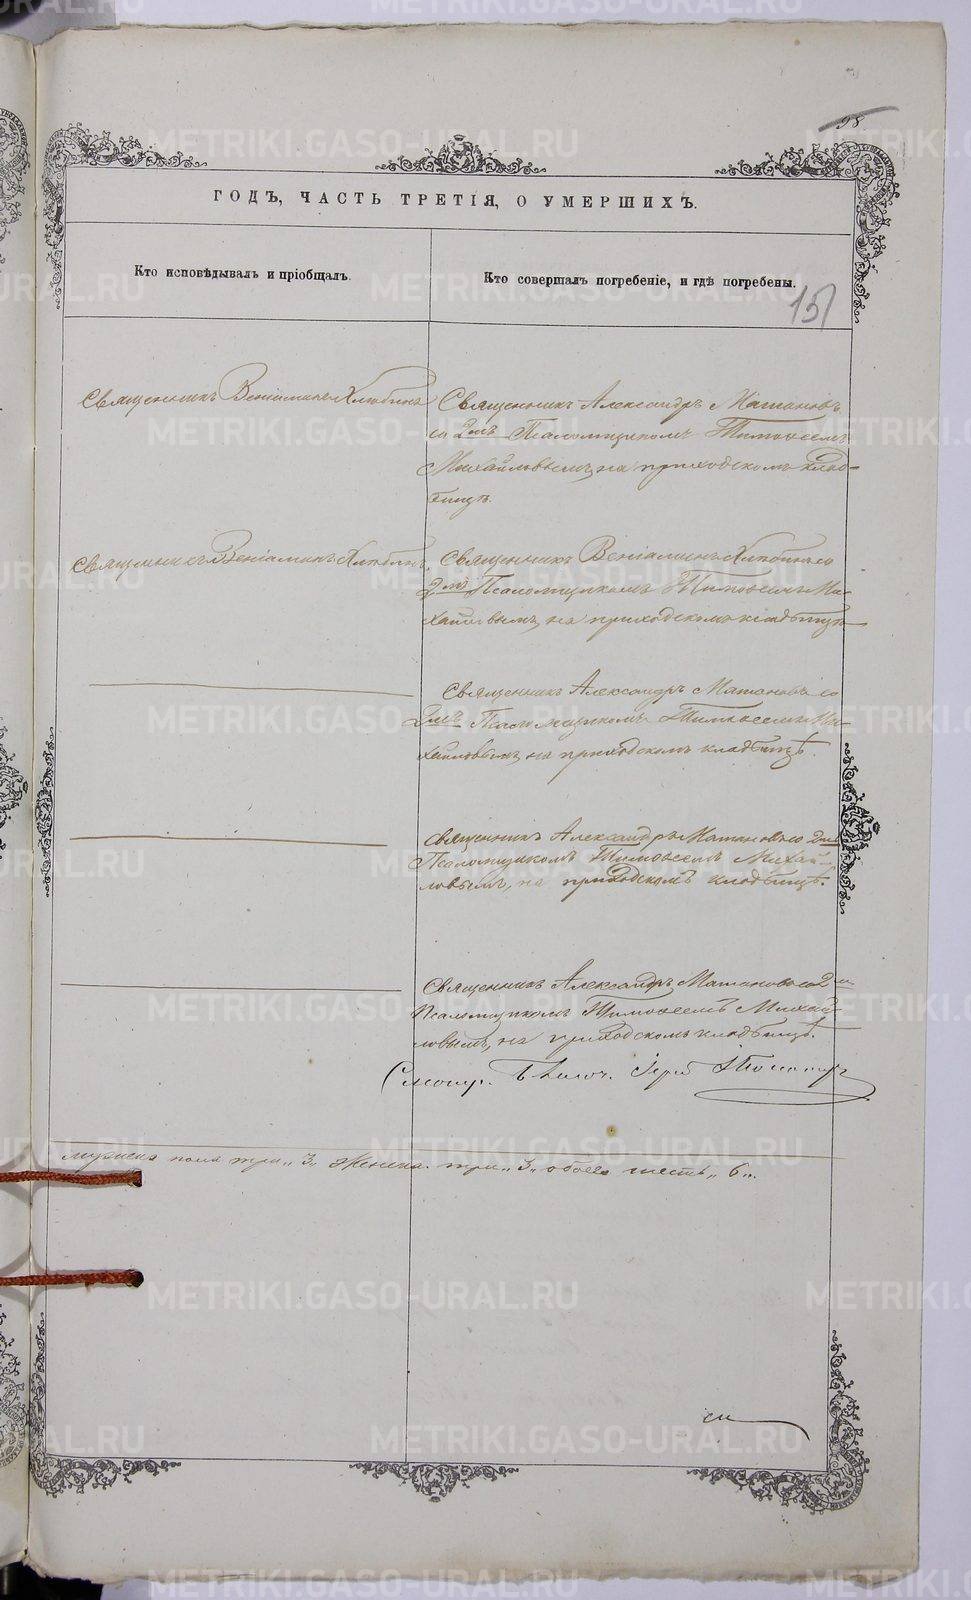 98
ГОДЪ, ЧАСТЬ ТРЕТІЯ, О УМЕРШИХЪ.
Кто исповѣдывалъ и пріобщалъ.
Кто совершалъ погребеніе, и гдѣ погребены.
151
Священникъ Веніаминъ Хлѣбинъ
Священникъ Александръ Матановъ
со 2мъ Псаломщикомъ Тимоѳеемъ
Михайловымъ, на приходскомъ клад-
бищѣ.
Священникъ Веніаминъ Хлѣбинъ
Священникъ Веніаминъ Хлѣбинъ со
2мъ Псаломщикомъ Тимоѳеемъ Ми-
хайловымъ, на приходскомъ кладбищѣ
Священникъ Александръ Матановъ со
2мъ Псаломщикомъ Тимоѳеемъ Ми-
хайловымъ, на приходскомъ кладбищѣ.
Священникъ Александръ Матановъ со 2мъ
Псаломщикомъ Тимоѳеемъ Михай-
ловымъ, на приходскомъ кладбищѣ.
Священникъ Александръ Матановъ со 2мъ
Псаломщикомъ Тимоѳеемъ Михай-
ловымъ, на приходскомъ кладбищѣ.
мужска пола три „3„ Женска. три „3„ обоего шесть „6„.
METRIKI.GASO-URAL.RU